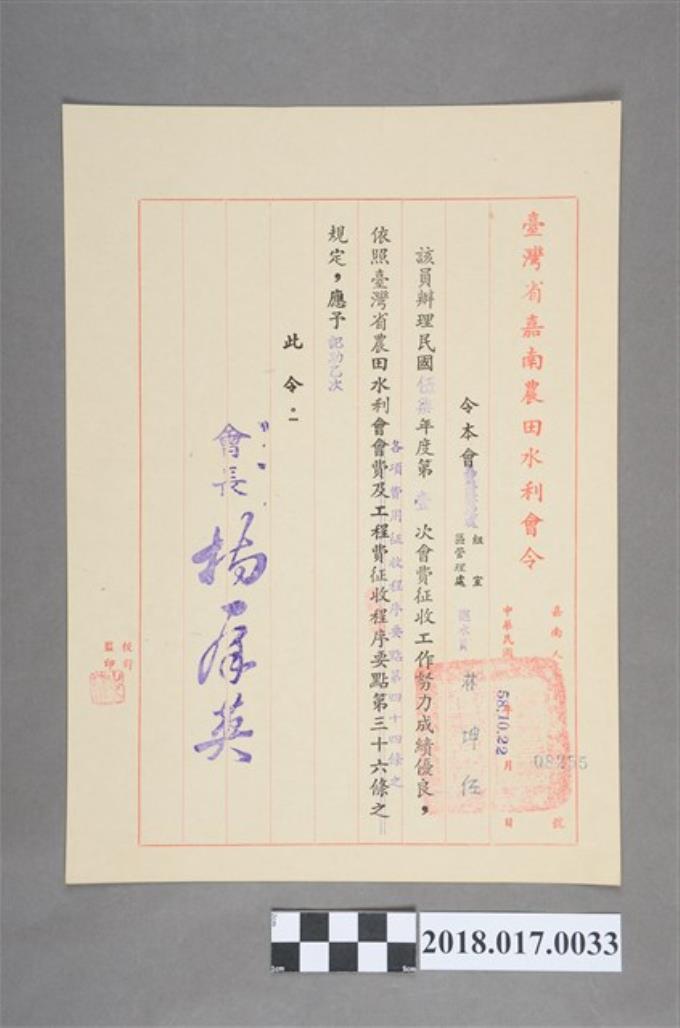 臺灣省嘉南農田水利會令
嘉南人
號
08255
中華民國 年 月 日
58.10.22
令本會
組室
區管理處
林坤伍
該員辦理民國伍柒年度第壹次會費征收工作努力成績優良，
各項費用征收程序要點第四十四條之
依照臺灣省農田水利會會費及工程費征收程序要點第三十六條之
規定，應予記功乙次
此令。
會長
楊
英
校對
監印
2018.017.0033